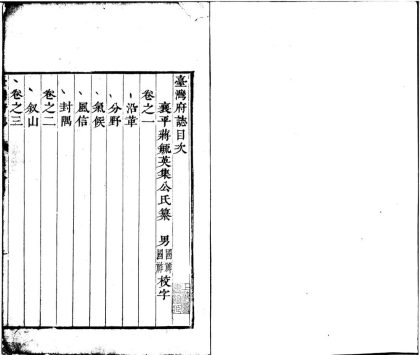 臺灣府誌目次
襄平蔣毓英集公氏纂 男 國 國 校字
卷之一
、沿革
、分野
、氣候
、風信
、封隅
卷之二
、叙山
、卷之三